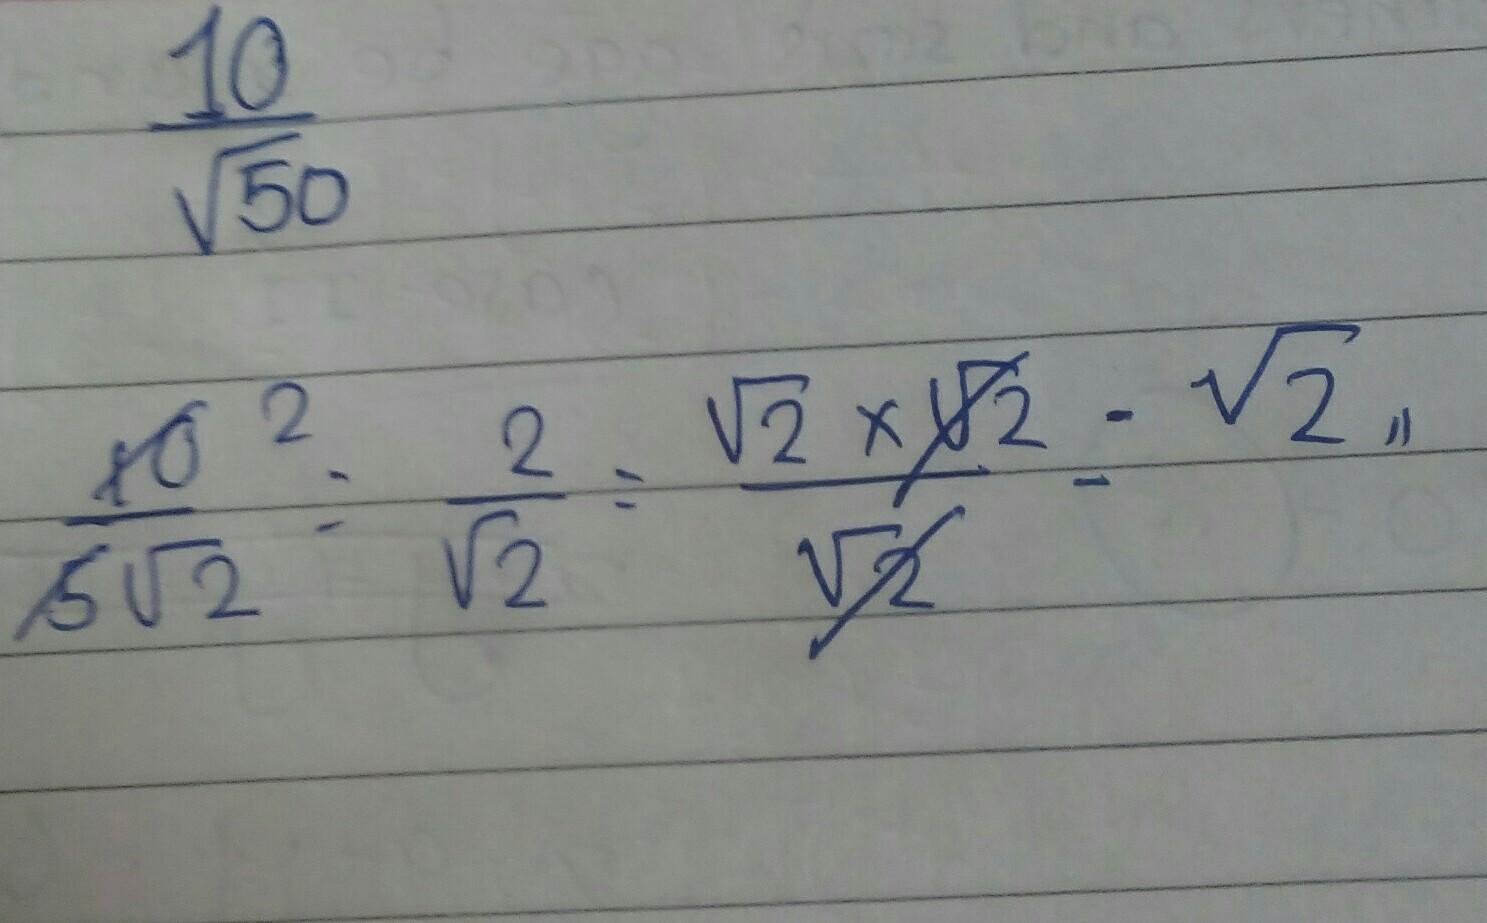 10
√50
10 2 = 2 = √2 × √2 = √2 "
5√2 √2 √2